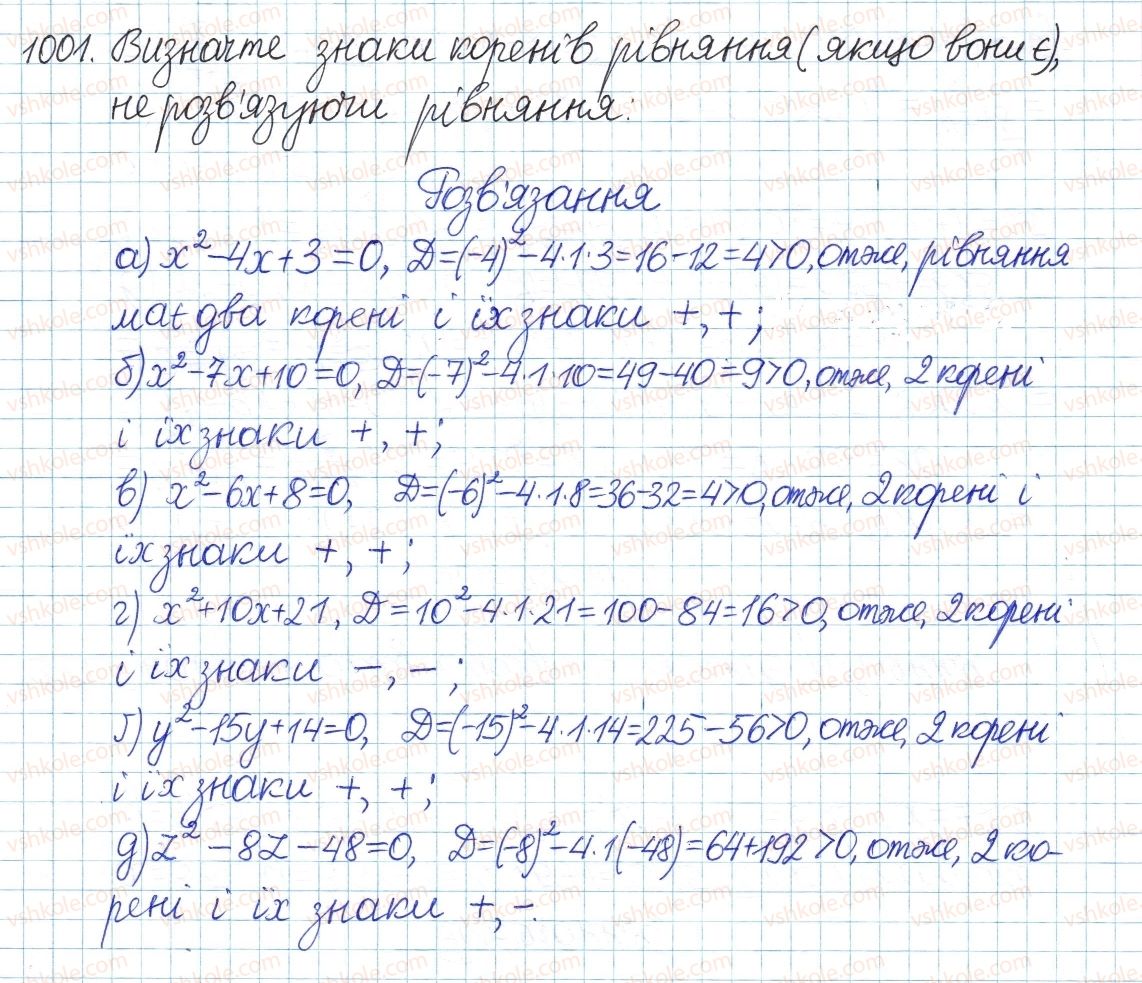 1001. Визначте знаки коренів рівняння (якщо вони є),
не розв'язуючи рівняння:
Розв'язання
а) x² - 4x + 3 = 0, D = (-4)² - 4·1·3 = 16 - 12 = 4 > 0, отже, рівняння
має два корені і їх знаки +, +;
б) x² - 7x + 10 = 0, D = (-7)² - 4·1·10 = 49 - 40 = 9 > 0, отже, 2 корені
і їх знаки +, +;
в) x² - 6x + 8 = 0, D = (-6)² - 4·1·8 = 36 - 32 = 4 > 0, отже, 2 корені і
їх знаки +, +;
г) x² + 10x + 21, D = 10² - 4·1·21 = 100 - 84 = 16 > 0, отже, 2 корені
і їх знаки -, -;
ґ) y² - 15y + 14 = 0, D = (-15)² - 4·1·14 = 225 - 56 > 0, отже, 2 корені
і їх знаки +, +;
д) z² - 8z - 48 = 0, D = (-8)² - 4·1(-48) = 64 + 192 > 0, отже, 2 ко-
рені і їх знаки +, -.